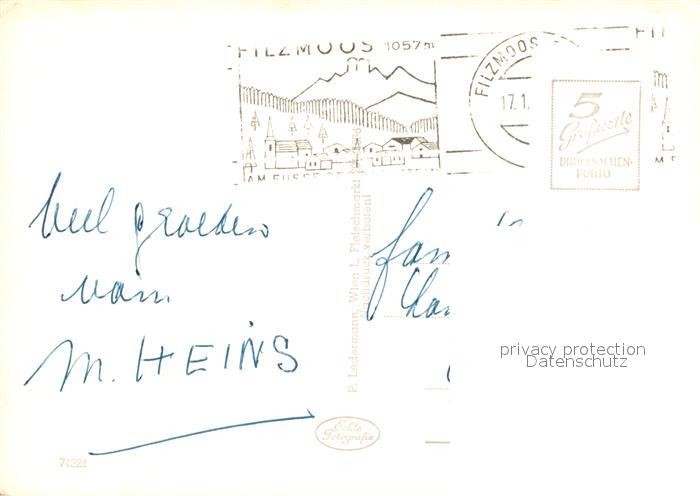 FILZMOOS 1057m
FILZMOOS
17.1.
5
Grußworte
DRUCKSACHEN-
PORTO
AM FUSSE DER
Veel groeten
van
M. HEINS
P. Ledermann, Wien I., Fleischmarkt
Nachdruck verboten!
Echte
Fotografie
74322
fam
privacy protection
Datenschutz